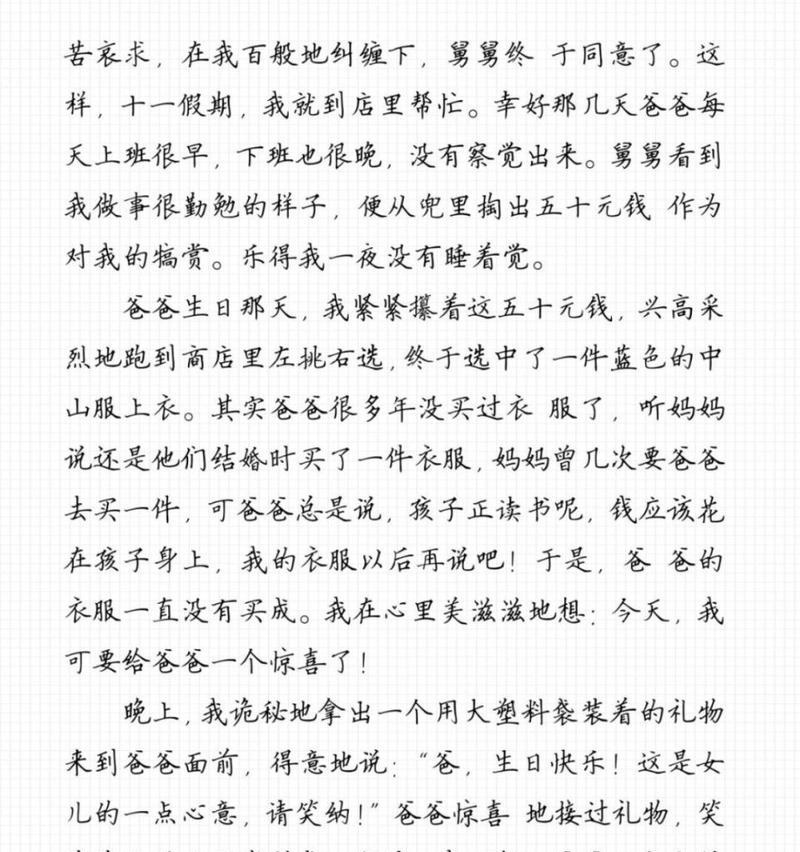 苦哀求，在我百般地纠缠下，舅舅终 于同意了。这
样，十一假期，我就到店里帮忙。幸好那几天爸爸每
天上班很早，下班也很晚，没有察觉出来。舅舅看到
我做事很勤勉的样子，便从兜里掏出五十元钱 作为
对我的犒赏。乐得我一夜没有睡着觉。
爸爸生日那天，我紧紧攥着这五十元钱，兴高采
烈地跑到商店里左挑右选，终于选中了一件蓝色的中
山服上衣。其实爸爸很多年没买过衣 服了，听妈妈
说还是他们结婚时买了一件衣服，妈妈曾几次要爸爸
去买一件，可爸爸总是说，孩子正读书呢，钱应该花
在孩子身上，我的衣服以后再说吧！于是，爸 爸的
衣服一直没有买成。我在心里美滋滋地想：今天，我
可要给爸爸一个惊喜了！
晚上，我诡秘地拿出一个用大塑料袋装着的礼物
来到爸爸面前，得意地说：“爸，生日快乐！这是女
儿的一点心意，请笑纳！”爸爸惊喜 地接过礼物，笑